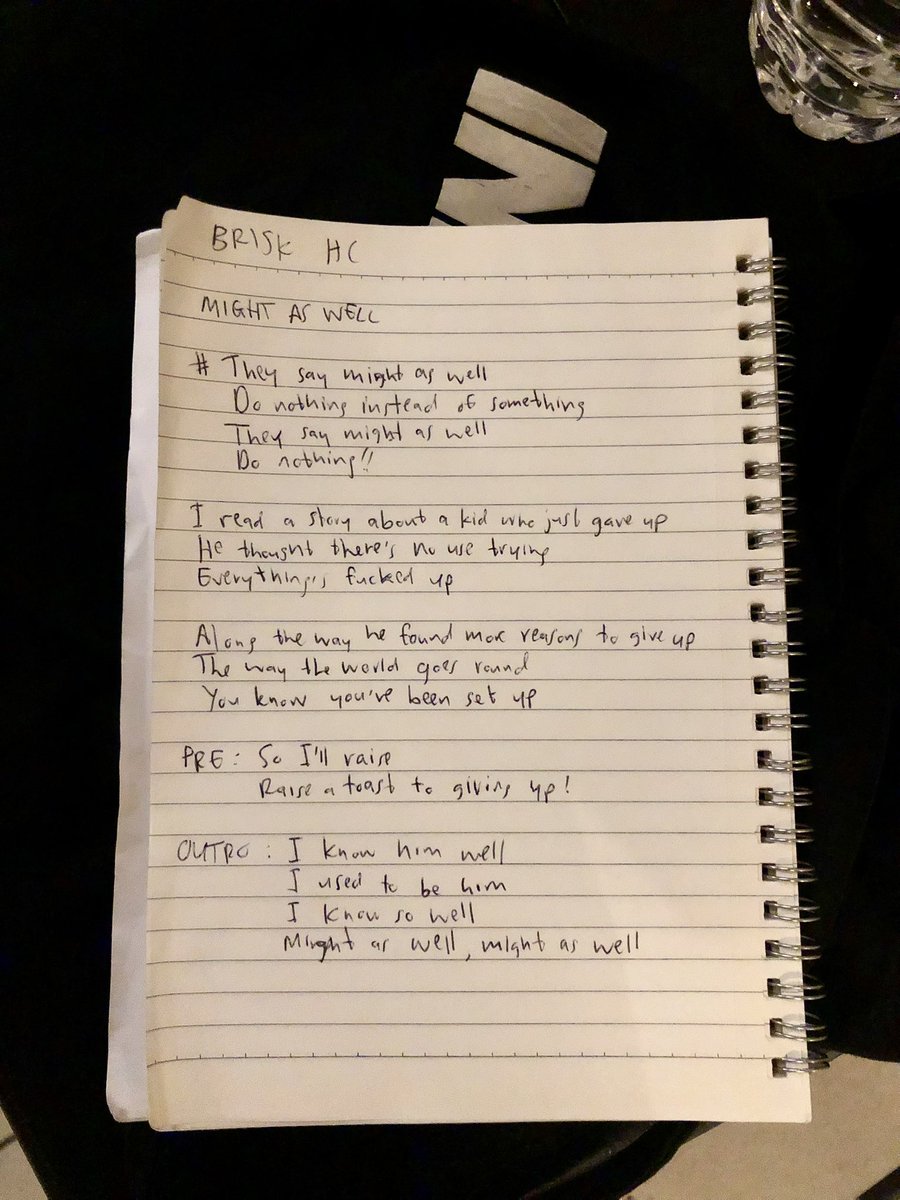 BRISK HC
MIGHT AS WELL
# They say might as well
Do nothing instead of something
They say might as well
Do nothing!!
I read a story about a kid who just gave up
He thought there's no use trying
Everything's fucked up
Along the way he found more reasons to give up
The way the world goes round
You know you've been set up
PRE: So I'll raise
Raise a toast to giving up!
OUTRO: I know him well
I used to be him
I know so well
Might as well, might as well